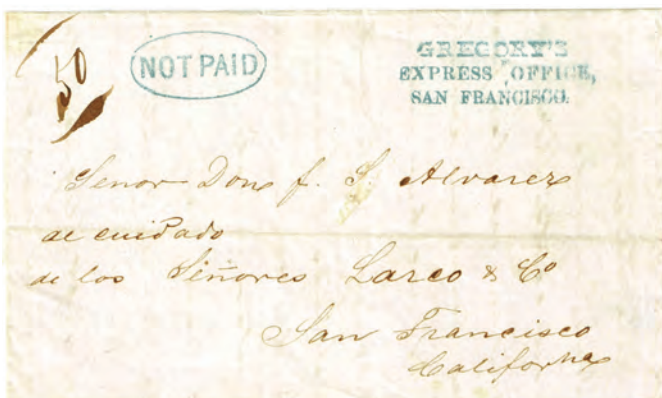 50
NOT PAID
GREGORY'S
EXPRESS OFFICE,
SAN FRANCISCO.
Senor Don f. S. Alvarez
al cuidado
de los Señores Larco & Co
San Francisco
California